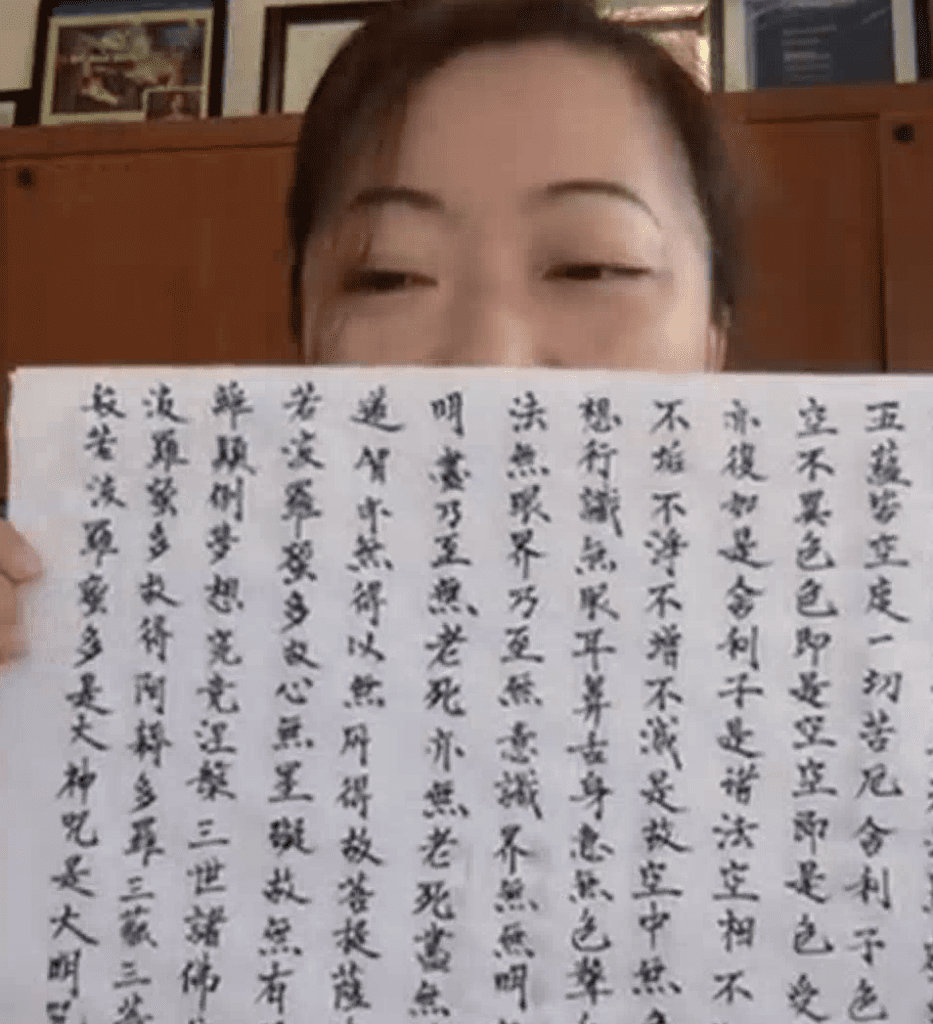 五蘊皆空度一切苦厄舍利子色
空不異色色即是空空即是色受
亦復如是舍利子是諸法空相不
不垢不淨不增不減是故空中無
想行識無眼耳鼻舌身意無色聲
法無眼界乃至無意識界無無明
明盡乃至無老死亦無老死盡無
道智亦無得以無所得故菩提薩
若波羅蜜多故心無罣礙故無有
離顛倒夢想究竟涅槃三世諸佛
波羅蜜多故得阿耨多羅三藐三菩
般若波羅蜜多是大神咒是大明咒